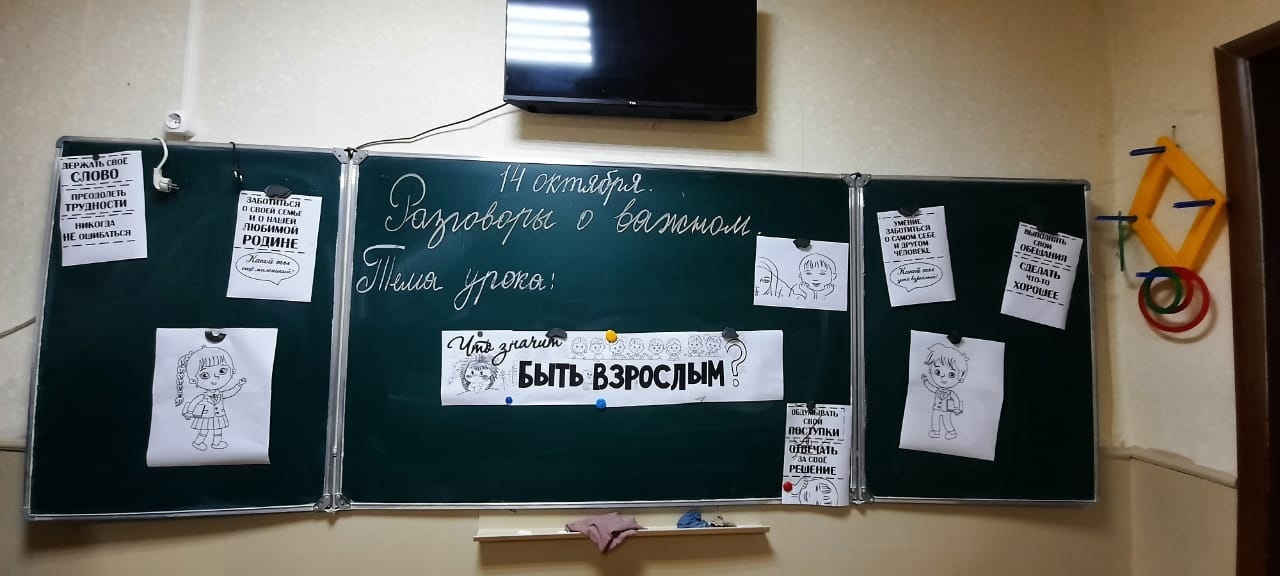 ДЕРЖАТЬ СВОЁ
СЛОВО
ПРЕОДОЛЕТЬ
ТРУДНОСТИ
НИКОГДА
НЕ ОШИБАТЬСЯ
ЗАБОТИТЬСЯ
О СВОЕЙ СЕМЬЕ
И О НАШЕЙ
ЛЮБИМОЙ
РОДИНЕ
Какой ты
ещё маленький!
14 октября.
Разговоры о важном.
Тема урока:
Что значит
БЫТЬ ВЗРОСЛЫМ?
ОБДУМЫВАТЬ
СВОИ
ПОСТУПКИ
ОТВЕЧАТЬ
ЗА СВОЁ
РЕШЕНИЕ
УМЕНИЕ
ЗАБОТИТЬСЯ
О САМОМ СЕБЕ
И ДРУГОМ
ЧЕЛОВЕКЕ
Какой ты
уже взрослый!
ВЫПОЛНЯТЬ
СВОИ
ОБЕЩАНИЯ
СДЕЛАТЬ
ЧТО-ТО
ХОРОШЕЕ